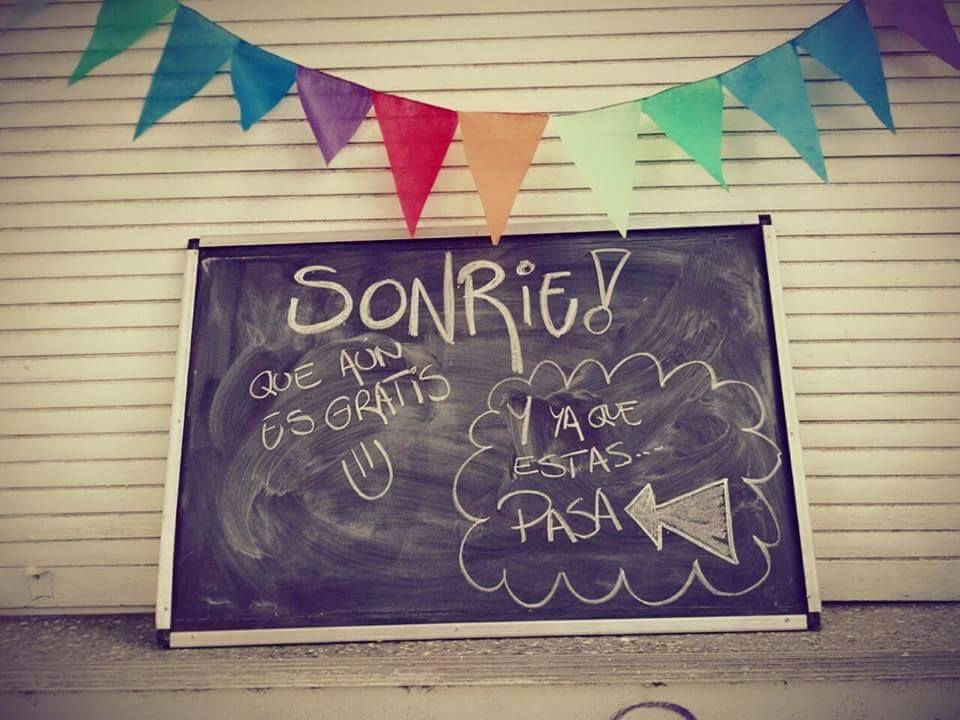 SONRiE!
QUE AÚN
ES GRATIS
Y YA QUE
ESTAS...
PASA